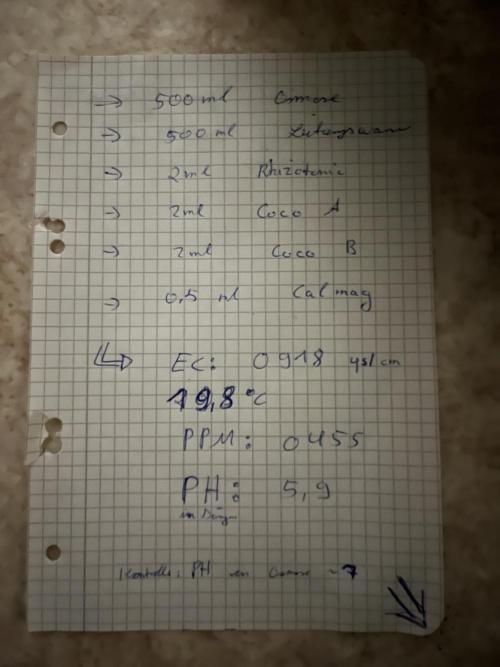 → 500 ml Osmose
→ 500 ml Leitungswasser
→ 2ml Rhizotonic
→ 2ml Coco A
→ 2ml Coco B
→ 0,5 ml Calmag
EC: 0918 µs/cm
19,8 °C
PPM: 0455
PH: 5,9
Kontrolle: PH von Osmose ~7